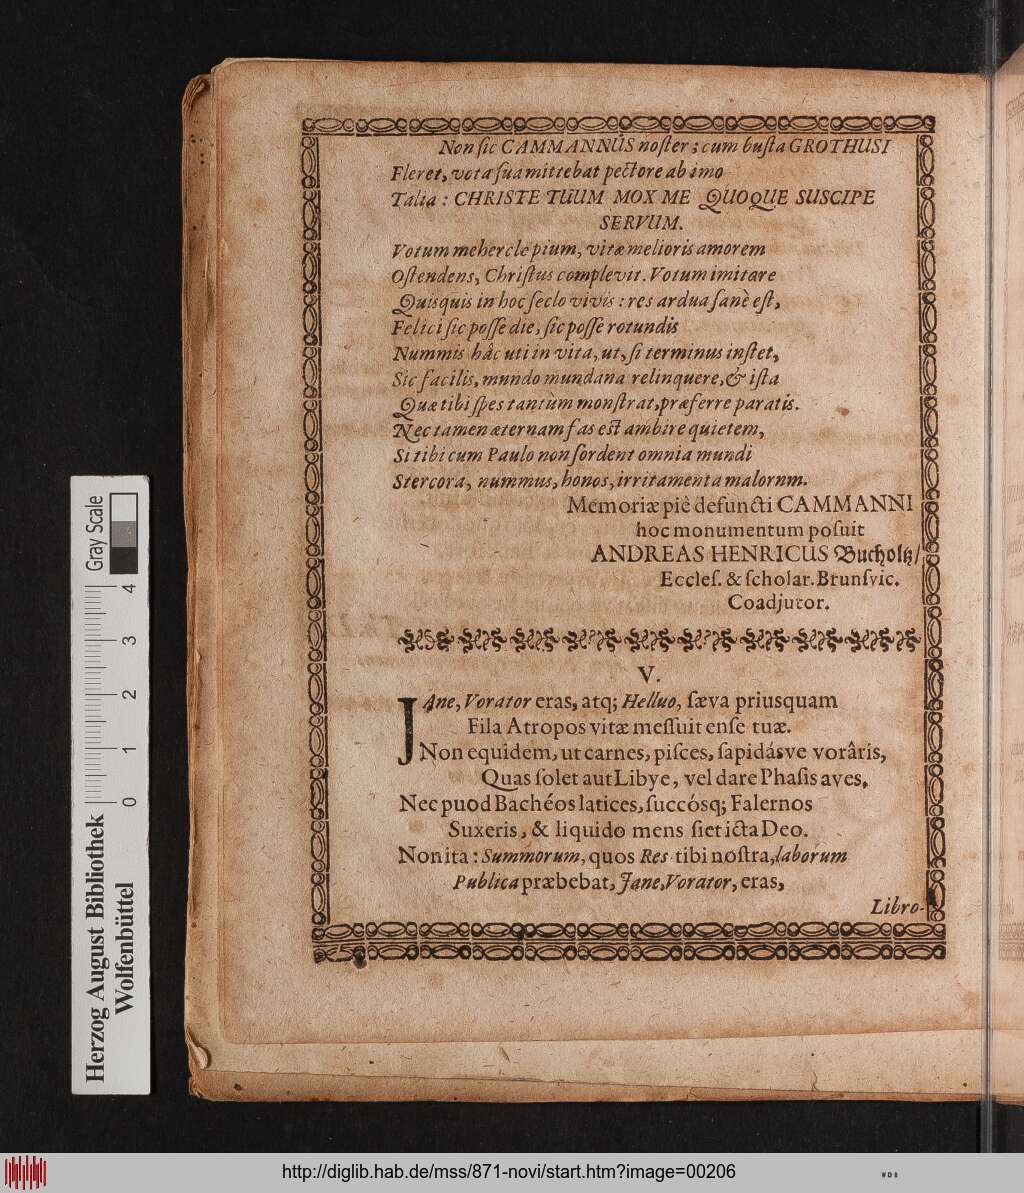 Non ſic CAMMANNUS noſter; cum buſta GROTHUSI
Fleret, vota ſua mittebat pectore ab imo
Talia: CHRISTE TUUM MOX ME QUOQUE SUSCIPE
SERVUM.
Votum mehercle pium, vitæ melioris amorem
Oſtendens, Chriſtus complevit. Votum imitare
Quisquis in hoc ſeclo vivis: res ardua ſanè eſt,
Felici ſic poſſe die, ſic poſſe rotundis
Nummis hâc uti in vita, ut, ſi terminus inſtet,
Sic facilis, mundo mundana relinquere, & iſta
Quæ tibi ſpes tantùm monſtrat, præferre paratis.
Nec tamen æternam fas eſt ambire quietem,
Si tibi cum Paulo non ſordent omnia mundi
Stercora, nummus, honos, irritamenta malorum.
Memoriæ piè defuncti CAMMANNI
hoc monumentum poſuit
ANDREAS HENRICUS Bucholtz/
Eccleſ. & ſcholar. Brunſvic.
Coadjutor.
V.
JAne, Vorator eras, atq; Helluo, ſæva priusquam
Fila Atropos vitæ meſſuit enſe tuæ.
Non equidem, ut carnes, piſces, ſapidásve vorâris,
Quas ſolet aut Libye, vel dare Phaſis aves,
Nec puod Bachéos latices, ſuccósq; Falernos
Suxeris, & liquido mens ſiet icta Deo.
Non ita: Summorum, quos Res tibi noſtra, laborum
Publica præbebat, Jane, Vorator, eras,
Libro-
Herzog August Bibliothek
Wolfenbüttel
Gray Scale
0 1 2 3 4
http://diglib.hab.de/mss/871-novi/start.htm?image=00206